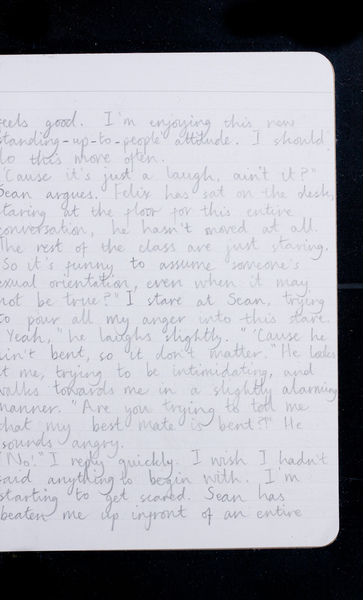 eels good. I'm enjoying this new
standing-up-to-people attitude. I should
do this more often.
"Cause it's just a laugh, ain't it?"
Sean argues. Felix has sat on the desk,
staring at the floor for this entire
conversation, he hasn't moved at all.
The rest of the class are just staring.
"So it's funny to assume someone's
exual orientation, even when it may
not be true?" I stare at Sean, trying
to pour all my anger into this stare.
"Yeah," he laughs slightly. "'Cause he
ain't bent, so it don't matter." He looks
at me, trying to be intimidating, and
walks towards me in a slightly alarming
manner. "Are you trying to tell me
that my best mate is bent?!" He
sounds angry.
"No!" I reply quickly. I wish I hadn't
said anything to begin with. I'm
starting to get scared. Sean has
beaten me up infront of an entire